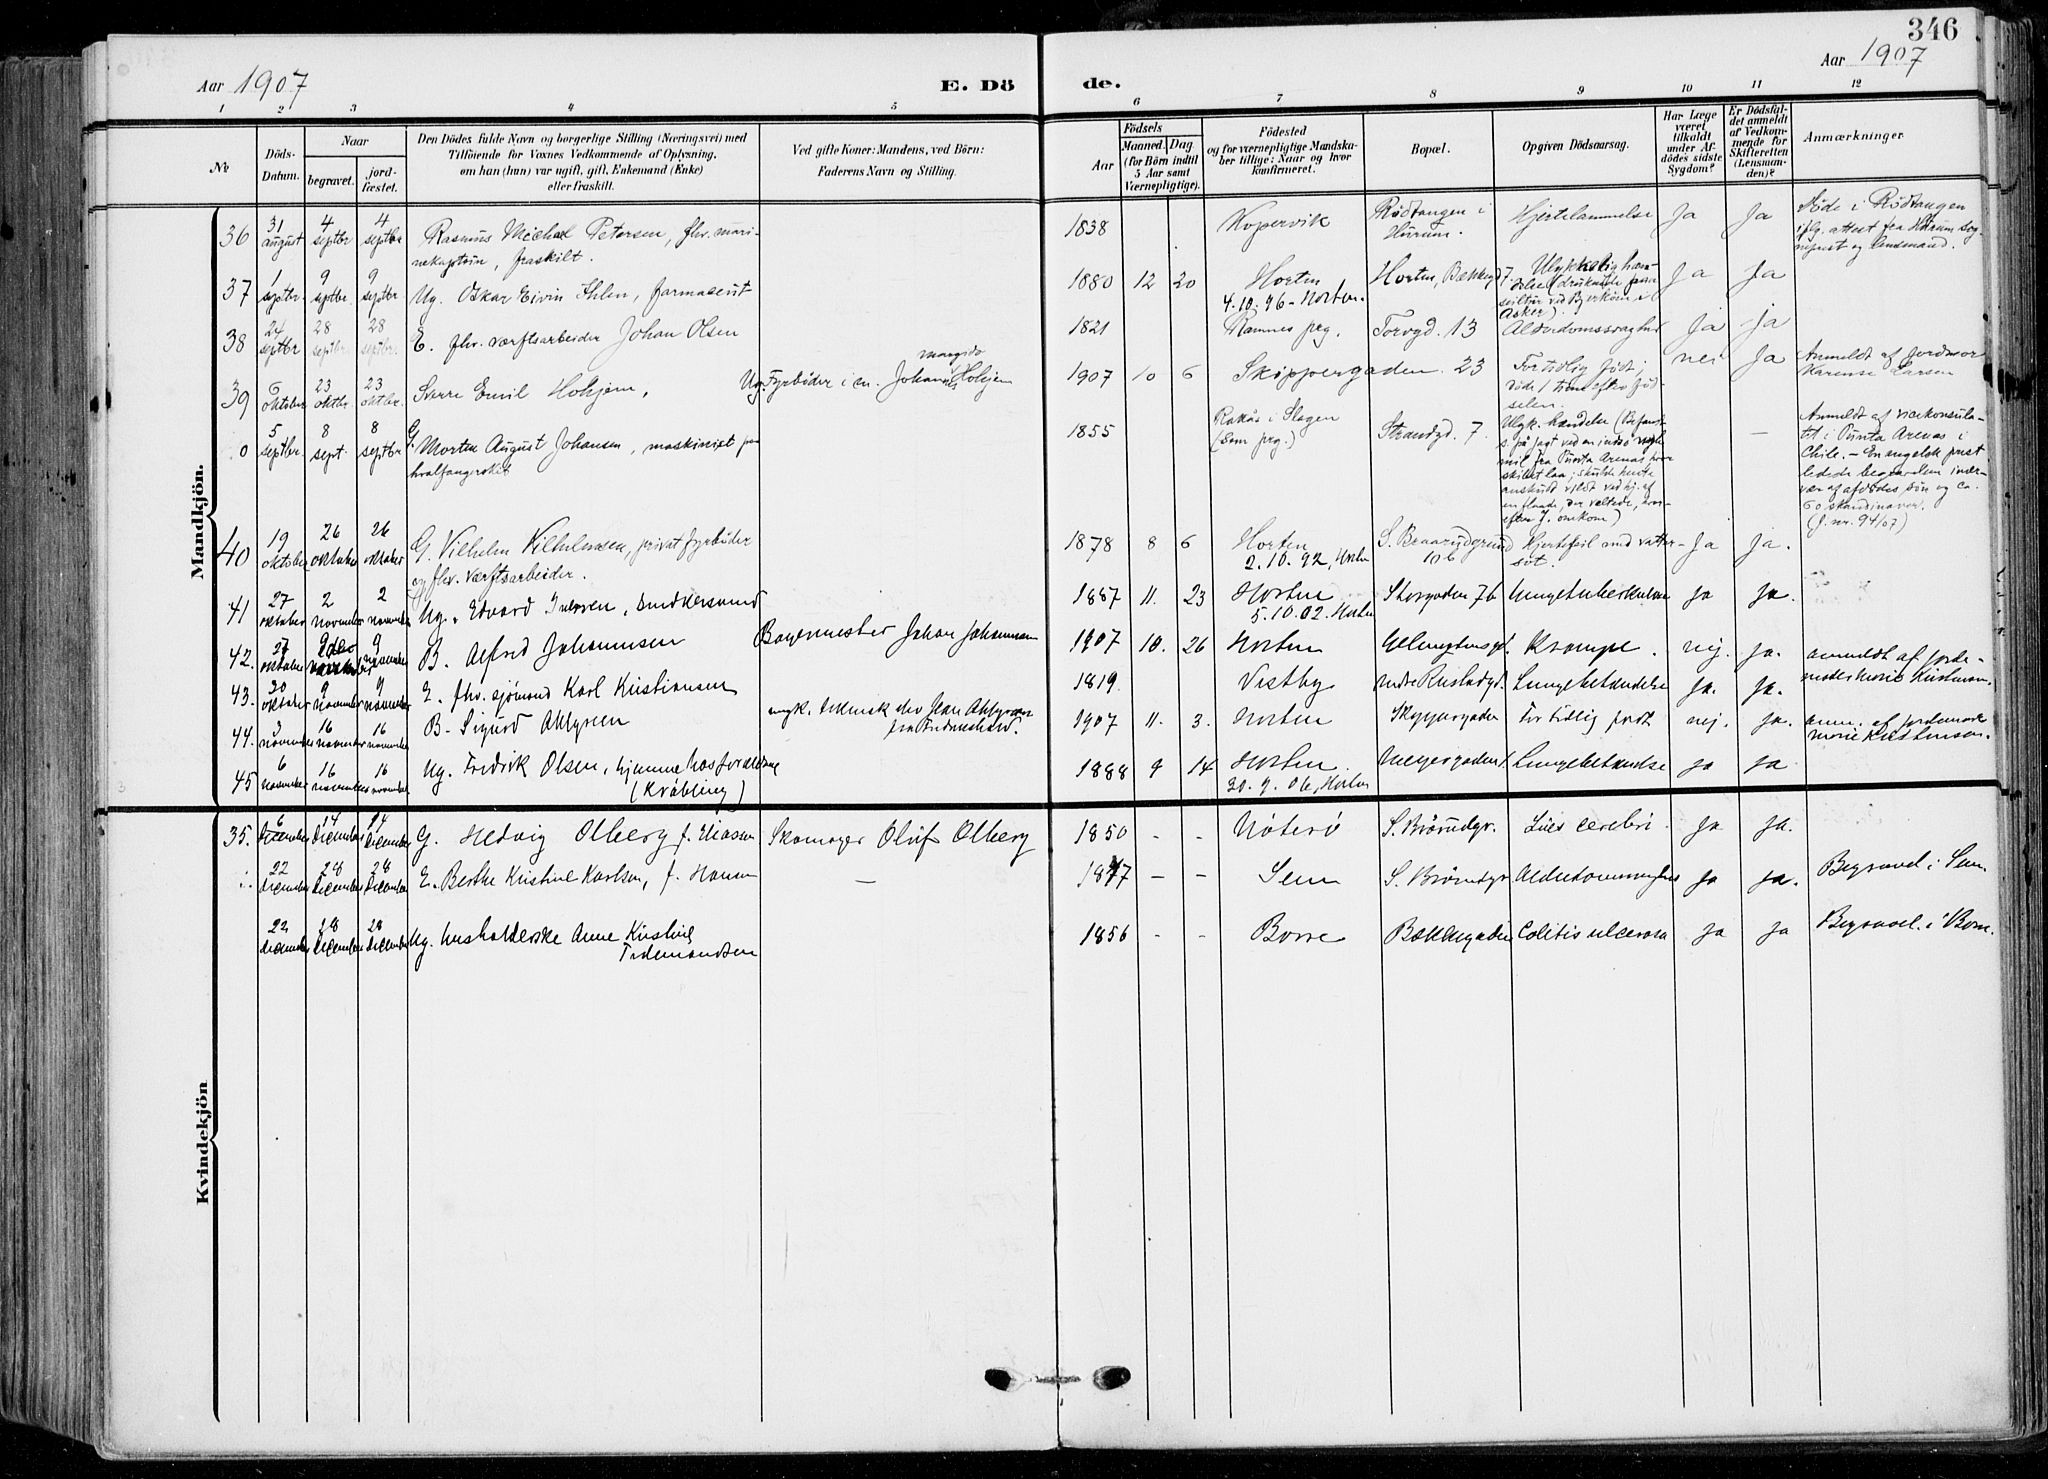 346
Aar 1907
E. Dö
de.
Aar 1907
1 2 3 4 5 6 7 8 9 10 11 12
No
Döds-
Datum.
Naar
begravet.
jord-
fæstet.
Den Dödes fulde Navn og borgerlige Stilling (Næringsvei) med
Tilföiende for Voxnes Vedkommende af Oplysning,
om han (hun) var ugift, gift, Enkemand (Enke)
eller fraskilt.
Ved gifte Koner: Mandens, ved Börn:
Faderens Navn og Stilling.
Födsels
Aar
Maaned. Dag
(for Börn indtil
5 Aar samt
Værnepligtige).
Födested
og for værnepligtige Mandska-
ber tillige: Naar og hvor
konfirmeret.
Bopæl.
Opgiven Dödsaarsag.
Har Læge
været
tilkaldt
under Af-
dödes sidste
Sygdom?
Er Dödsfal-
det anmeldt
af Vedkom-
mende for
Skifteretten
(Lensman-
den)?
Anmærkninger
Mandkjön.
36 31 august 4 septbr 4 septbr Rasmus Michael Petersen, fhv. mari-
nekaptein, fraskilt.
1838 Kopervik Rödtangen i
Hurum. Hjertelammelse Ja Ja Döde i Rödtangen
iflg. attest fra Hurum sog-
neprest og lensmand.
37 1 septbr. 9 septbr. 9 septbr. Ug. Oskar Eivin Ihlen, farmaceut
1880 12 20 Horten
4.10.96 - Horten. Horten, Bakkegd 7 Ulykkelig hæn-
delse (druknede paa
seiltur ved Bjerköen i
Asker). Ja Ja
38 24 septbr 28 septbr 28 septbr. E. fhv. værftsarbeider Johan Olsen
1821 Ramnes prg. Torvgd. 13 Alderdomssvaghed Ja Ja
39 6 oktober 23 oktbr. 23 oktbr. Sverre Emil Hohjem,
Ug. Fyrböder i m. Johan Hohjem
1907 10 6 Horten Skippergaden 23 For tidlig födt,
död 1 time efter föd-
selen. nei Ja Anmeldt af jordmor
Karense Larsen
0 5 septbr. 8 sept. 8 septbr G. Morten August Johansen, maskinist paa
hvalfangerskib
1855 Rakås i Slagen
(Sem prg.) Strandgd. 7. Ulyk. hændelse
—
Anmeldt af vicekonsula-
tet i Punta Arenas i
Chile. - En engelsk prest
ledede begravelsen i nær-
vær af afdödes sön og ca.
60 skandinaver.
(J. nr. 94/07)
40 19 oktober 26 oktober 26 oktober G. Vilhelm Vilhelmsen, privat fyrböder
og fhv. værftsarbeider.
1878 8 6 Horten
2.10.92, Horten S. Braarudgrund
106 Hjertefeil med vatter-
sot. Ja Ja.
41 27 oktober 2 november 2 november Ug. Edvard Iversen, smedkersvend
1887 11. 23 Horten
5.10.02. Horten Storgaden 76 Lungetuberkulose Ja Ja.
42. 27 oktober 9 november 9 november B. Alfred Johannesen Bagermester Johan Johannesen
1907 10. 26 Horten Krampe. nej. Ja. anmeldt af jorde-
moder Marie Kristensen.
43. 30 oktober 9 november 9 november E. fhv. sjömand Karl Kristiansen
1819. Vestby Lungebetændelse Ja. Ja.
44. 3 november 16 november 16 november B. Sigurd Ahlgreen
1907 11. 3. Horten Skippergaden For tidlig födt nej. Ja. anm. af jordemoder
Marie Kristensen.
45 6 november 16 november 16 november Ug. Fredrik Olsen, hjemme hos forældrene
(Kröbling)
1888 9 14 Horten.
30.9.06, Horten Lungebetændelse Ja Ja
Kvindekjön
35. 6 december 14 december 14 december G. Hedvig Olberg f. Eliassen Skomager Oluf Olberg
1850 - - Nöterö S. Brårudgr. Lues cerebri. Ja Ja.
22 december 28 december 28 december E. Berthe Kristine Karlsen, f. Hansen —
1847 - - Sem S. Brårudgr Alderdomssvaghed Ja Ja. Begravet i Sem.
22 december 28 december 28 december Ug. husholderske Anne Kristine
Tidemandsen
1856 - - Borre Bakkegaden Colitis ulcerosa Ja Ja Begravet i Borre.